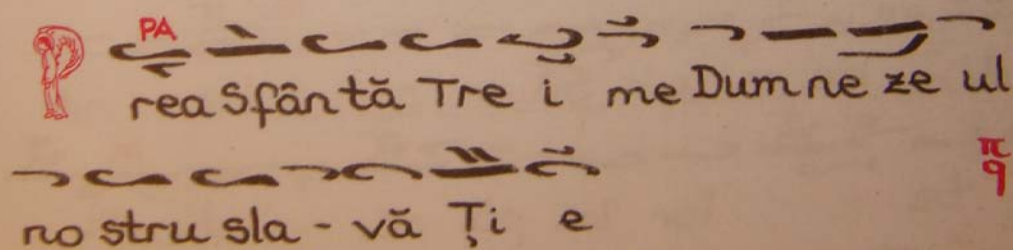 PA
P rea Sfân tă Tre i me Dum ne ze ul
π q
no stru sla - vă Ți e